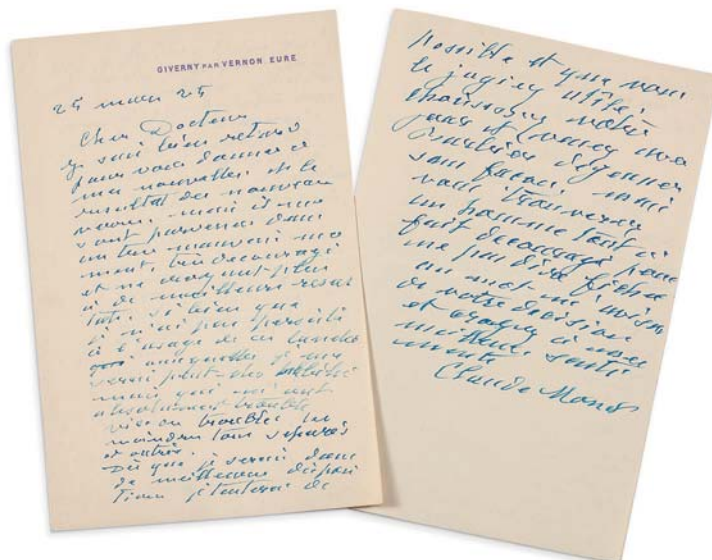 GIVERNY PAR VERNON. EURE
25 mars 25
Cher Docteur
je suis bien retard
pour vous donner de
mes nouvelles et le
résultat des nouveaux
verres. mais ils me
sont parvenus dans
un très mauvais mo
ment, très découragé
et ne croyant plus
à de meilleurs resul
tats. si bien que
je n'ai pas persisté
à l'usage de ces lunettes
auxquelles je me
serai peut être habitué
mais qui m'ont
absolument troublé
vision troublée les
moindres tons separés
et outrés.
Dès que je serai dans
de meilleures disposi
tions je tenterai de
possible et que vous
le jugiez utile,
choisissez votre
jour et venez
déjeuner
sans façon. mais
vous trouverez
un homme tout à
fait découragé pour
ne pas dire fichu
un mot
de votre décision
et croyez à mes
meilleurs senti
ments
Claude Monet